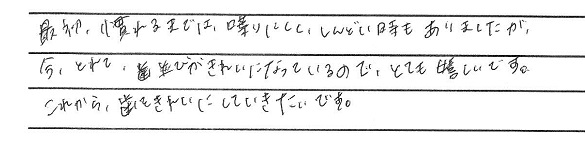 最初、慣れるまでは、喋りにくく、しんどい時もありましたが、
今、とれて、歯並びがきれいになっているので、とても嬉しいです。
これから、歯をきれいにしていきたいです。